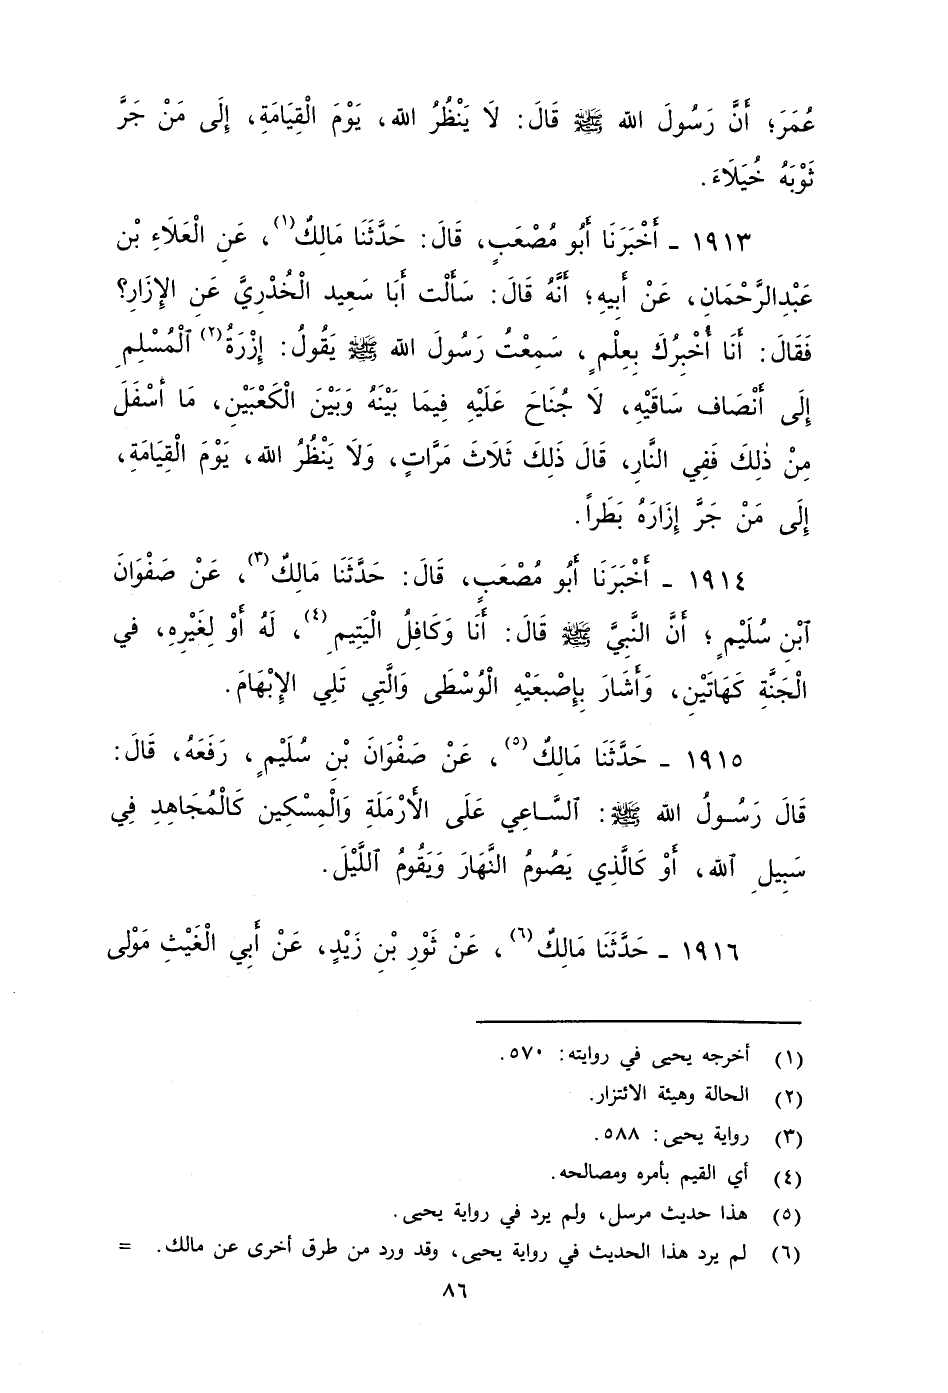 عُمَرَ؛ أَنَّ رَسُولَ الله ﷺ قَالَ: لَا يَنْظُرُ الله، يَوْمَ الْقِيَامَةِ، إِلَى مَنْ جَرَّ
ثَوْبَهُ خُيَلَاءَ.
١٩١٣ - أَخْبَرَنَا أَبُو مُصْعَبٍ، قَالَ: حَدَّثَنَا مَالِكٌ(١)، عَنِ الْعَلَاءِ بْنِ
عَبْدِالرَّحْمَانِ، عَنْ أَبِيهِ؛ أَنَّهُ قَالَ: سَأَلْت أَبَا سَعِيد الْخُدْرِيَّ عَنِ الإِزَارِ؟
فَقَالَ: أَنَا أُخْبِرُكَ بِعِلْمٍ، سَمِعْتُ رَسُولَ الله ﷺ يَقُولُ: إِزْرَةُ(٢) ٱلْمُسْلِمِ
إِلَى أَنْصَاف سَاقَيْهِ، لَا جُنَاحَ عَلَيْهِ فِيمَا بَيْنَهُ وَبَيْنَ الْكَعْبَيْنِ، مَا أَسْفَلَ
مِنْ ذٰلِكَ فَفِي النَّارِ، قَالَ ذَلِكَ ثَلَاثَ مَرَّاتٍ، وَلَا يَنْظُرُ الله، يَوْمَ الْقِيَامَةِ،
إِلَى مَنْ جَرَّ إِزَارَهُ بَطَراً.
١٩١٤ - أَخْبَرَنَا أَبُو مُصْعَبٍ، قَالَ: حَدَّثَنَا مَالِكٌ(٣)، عَنْ صَفْوَانَ
ٱبْنِ سُلَيْمٍ؛ أَنَّ النَّبِيَّ ﷺ قَالَ: أَنَا وَكَافِلُ الْيَتِيمِ(٤)، لَهُ أَوْ لِغَيْرِهِ، في
الْجَنَّةِ كَهَاتَيْنِ، وَأَشَارَ بِإِصْبَعَيْهِ الْوُسْطَى وَالَّتِي تَلِي الإِبْهَامَ.
١٩١٥ - حَدَّثَنَا مَالِكٌ(٥)، عَنْ صَفْوَانَ بْنِ سُلَيْمٍ، رَفَعَهُ، قَالَ:
قَالَ رَسُولُ الله ﷺ: ٱلسَّاعِي عَلَى الأَرْمَلَةِ وَالْمِسْكِين كَالْمُجَاهِدِ فِي
سَبِيلِ ٱلله، أَوْ كَالَّذِي يَصُومُ النَّهَارَ وَيَقُومُ ٱللَّيْلَ.
١٩١٦ - حَدَّثَنَا مَالِكٌ(٦)، عَنْ ثَوْرِ بْنِ زَيْدٍ، عَنْ أَبِي الْغَيْثِ مَوْلى
(١) أخرجه يحيى في روايته: ٥٧٠.
(٢) الحالة وهيئة الائتزار.
(٣) رواية يحيى: ٥٨٨.
(٤) أي القيم بأمره ومصالحه.
(٥) هذا حديث مرسل، ولم يرد في رواية يحيى.
(٦) لم يرد هذا الحديث في رواية يحيى، وقد ورد من طرق أخرى عن مالك. =
٨٦